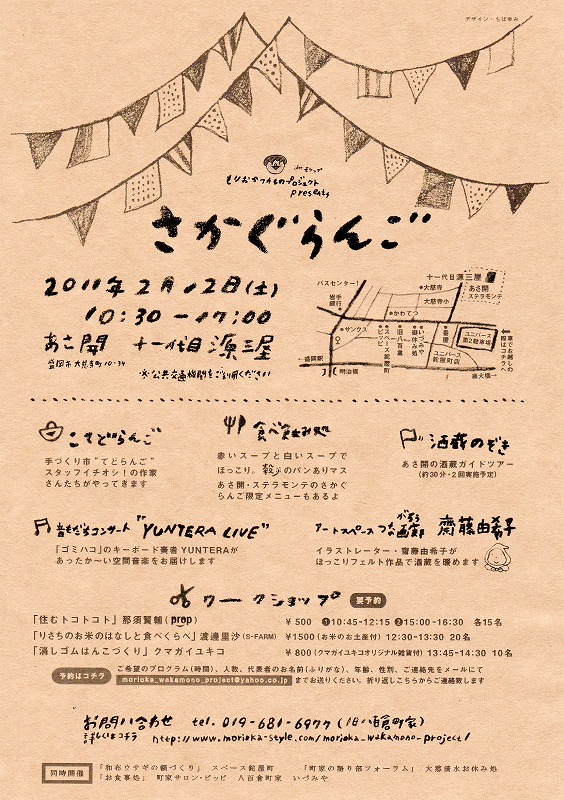 デザイン・ちばゆみ
もりおかワカものプロジェクト
presents
さかぐらんご
2011年2月12日(土)
10:30－17:00
あさ開 十一代目源三屋
盛岡市大慈寺町10-34
※公共交通機関をご利用ください
バスセンター↑
岩手銀行
大慈寺
大慈寺小
十一代目源三屋
あさ開
ステラモンテ
かわてつ
サンクス
スペース鉈屋町
ピッピ
旧八百倉
御休み処
いづみや
番屋
ユニバース
第2駐車場
ユニバース
鉈屋町店
車でお越しの際はコチラへ
←盛岡駅
明治橋
南大橋→
こさどらんご
手づくり市“てどらんご”
スタッフイチオシ!の作家
さんたちがやってきます
食べ飲み処
赤いスープと白いスープで
ほっこり。穀のパンありマス
あさ開・ステラモンテのさかぐ
らんご限定メニューもあるよ
酒蔵のぞき
あさ開の酒蔵ガイドツアー
(約30分・2回実施予定)
音もだちコンサート “YUNTERA LIVE”
「ゴミハコ」のキーボード奏者 YUNTERAが
あったか〜い空間音楽をお届けします
アートスペースつなん画廊 齋藤由希子
がろう
イラストレーター・齋藤由希子が
ほっこりフェルト作品で酒蔵を暖めます
ワークショップ 要予約
「住むトコトコト」那須賢輔(prop) ¥500 ❶10:45-12:15 ❷15:00-16:30 各15名
「りさちのお米のはなしと食べくらべ」渡邉里沙(S-FARM) ¥1500(お米のお土産付) 12:30-13:30 20名
「消しゴムはんこづくり」クマガイユキコ ¥800(クマガイユキコオリジナル雑貨付) 13:45-14:30 10名
予約はコチラ
ご希望のプログラム(時間)、人数、代表者のお名前(ふりがな)、年齢、性別、ご連絡先をメールにて
morioka_wakamono_project@yahoo.co.jp までお送りください。折り返しこちらからご連絡致します
お問い合わせ tel. 019-681-6977 (旧八百倉町家)
詳しいはコチラ http://www.morioka-style.com/morioka_wakamono-project/
同時開催
「和布ウサギの額づくり」 スペース鉈屋町 「町家の語り部フォーラム」 大慈清水お休み処
「お食事処」 町家サロン・ピッピ 八百倉町家 いづみや